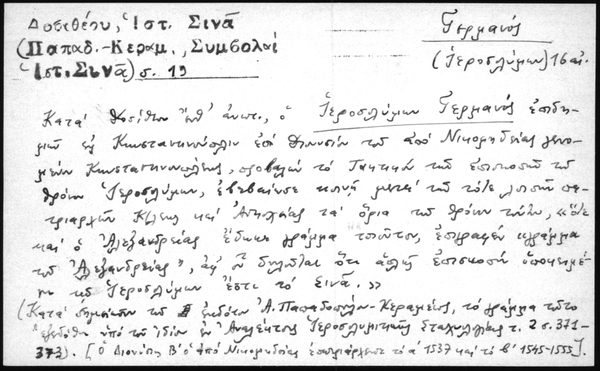 Δοσιθέου, Ἱστ. Σινᾶ
(Παπαδ.-Κεραμ., Συμβολαὶ
Ἱστ. Σινᾶ) σ. 19
Γερμανός
(Ἱεροσολύμων) 16 αἰ.
Κατὰ Δοσίθεον ἔνθ' ἀνωτ., ὁ Ἱεροσολύμων Γερμανὸς ἐπιδη-
μῶν εἰς Κωνσταντινούπολιν ἐπὶ Διονυσίου τοῦ ἀπὸ Νικομηδείας γενο-
μένου Κωνσταντινουπόλεως, προβαλὼν τὸ Τακτικὸν τῶν ἐπισκοπῶν τοῦ
θρόνου Ἱεροσολύμων, ἐβεβαίωσε κοινῇ μετὰ τῶν τότε λοιπῶν πα-
τριαρχῶν Κ/λεως καὶ Ἀντιοχείας τὰ ὅρια τοῦ θρόνου τούτου, «ὅτε
καὶ ὁ Ἀλεξανδρείας ἔδωκε γράμμα τοιοῦτον, ἐπιγραφὲν «γράμμα
τοῦ Ἀλεξανδρείας», ἀφ' οὗ δηλοῦται ὅτι ἁπλῆ ἐπισκοπὴ ὑποκειμέ-
νη τῷ Ἱεροσολύμων ἐστὶ τὸ Σινᾶ.»
(Κατὰ σημείωσιν τοῦ ἐκδότου Ἀ. Παπαδοπούλου-Κεραμέως, τὸ γράμμα τοῦτο
ἐξεδόθη ὑπὸ τοῦ ἰδίου ἐν Ἀναλέκτοις Ἱεροσολυμιτικῆς Σταχυολογίας τ. 2 σ. 371-
373). [ὁ Διονύσιος Β' ὁ ἀπὸ Νικομηδείας ἐπατριάρχευσε τὸ α' 1537 καὶ τὸ β' 1545-1555].